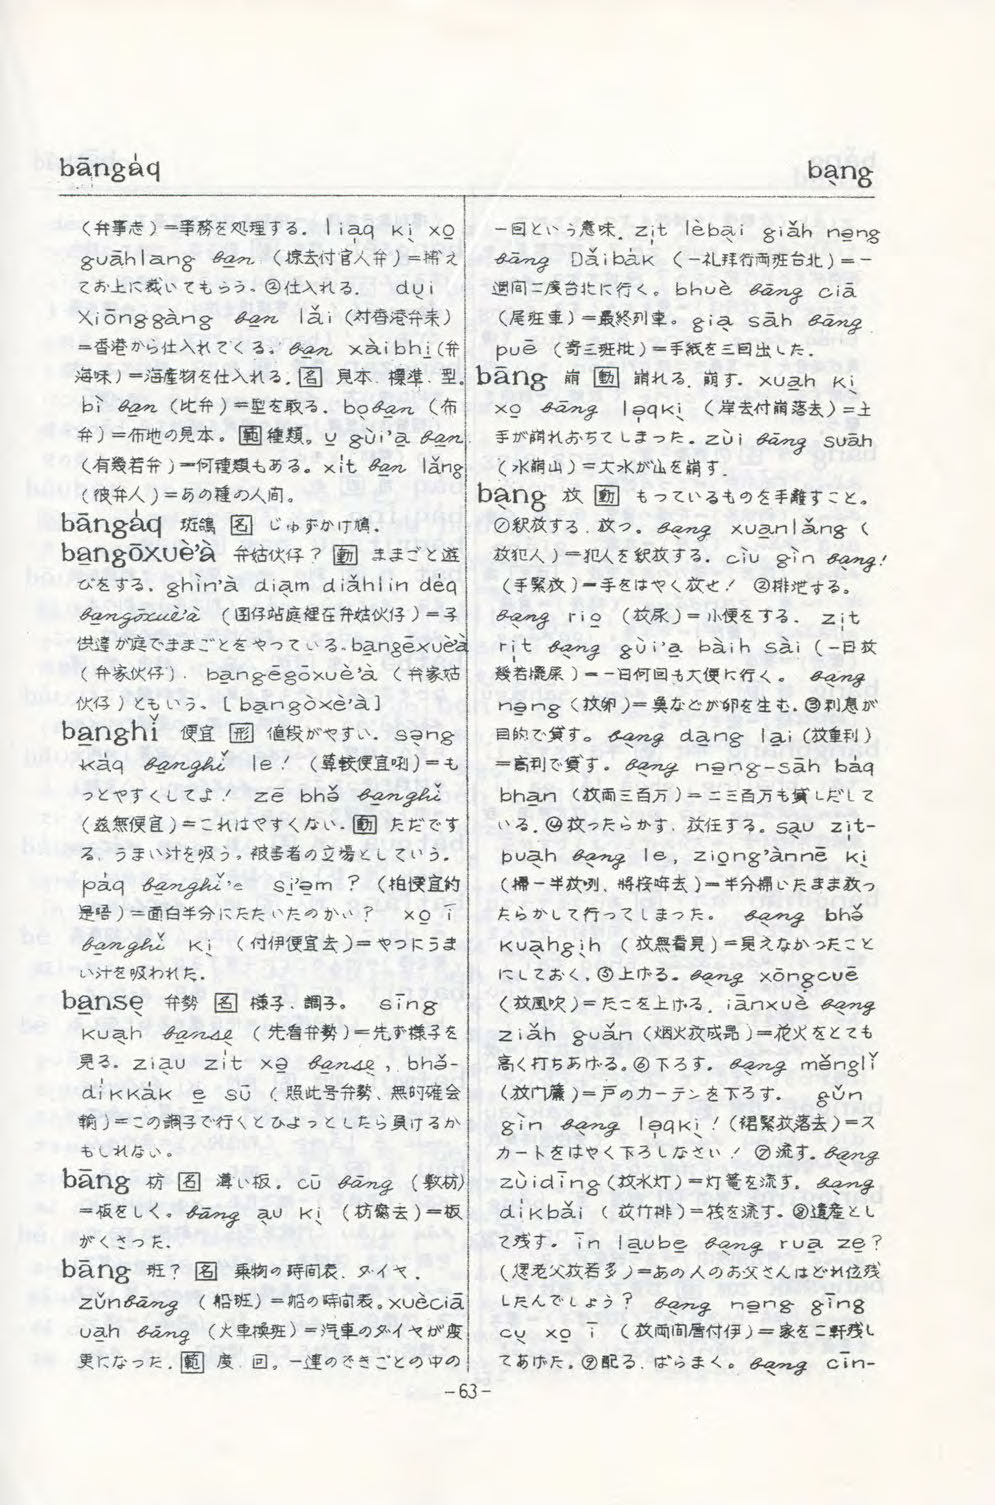 bāngáq
bạng
(弁事志)=事務を処理する. liaq kị xọ
guāhlang ban (掠去付官人弁)=捕え
てお上に裁いてもらう.②仕入れる. dụi
Xiōnggàng ban lǎi (対香港弁来)
=香港から仕入れてくる. ban xàibhị (弁
海味)=海産物を仕入れる. 名 見本.標準.型.
bì ban (比弁)=型を取る. bọban (布
弁)=布地の見本. 範 種類. ụ gùi'ạ ban
(有幾若弁)=何種類もある. xit ban lǎng
(彼弁人)=あの種の人間.
bāngáq 斑鴿 名 じゅずかけ鳩.
bangōxuè'à 弁姑伙仔? 動 ままごと遊
びをする. ghìn'à diạm diǎhlin déq
bangōxuè'à (囝仔站庭裡在弁姑伙仔)=子
供達が庭でままごとをやっている. bangēxuè'à
(弁家伙仔). bangēgōxuè'à (弁家姑
伙仔)ともいう. [bangōxè'à]
banghǐ 便宜 形 値段がやすい. sạng
káq banghǐ le! (算較便宜咧)=も
っとやすくしてよ! zē bhə̌ banghǐ
(玆無便宜)=これはやすくない. 動 ただです
る.うまい汁を吸う.被害者の立場としていう.
páq banghǐ'e sị'ə̣m? (拍便宜的
是唔)=面白半分にたたいたのかい? xọ ī
banghǐ kị (付伊便宜去)=やつにうま
い汁を吸われた.
bansẹ 弁勢 名 様子.調子. sīng
kuạh bansẹ (先看弁勢)=先ず様子を
見る. ziạu zit xə bansẹ, bhə̌-
dikkák ẹ sū (照此号弁勢、無的確会
輸)=この調子で行くとひょっとしたら負けるか
もしれない.
bāng 枋 名 薄い板. cū bāng (敷枋)
=板をしく. bāng ạu kị (枋腐去)=板
がくさった.
bāng 班? 名 乗物の時間表.ダイヤ.
zǔnbāng (船班)=船の時間表. xuècīā
uạh bāng (火車換班)=汽車のダイヤが変
更になった. 範 度.回.一連のできごとの中の
一回という意味. zit lèbại giǎh nạng
bāng Dǎibak (一礼拜行両班台北)=一
週間に度台北に行く. bhuè bāng ciā
(尾班車)=最終列車. giạ sāh bāng
puē (寄三班批)=手紙を三回出した.
bāng 崩 動 崩れる.崩す. xuạh kị
xọ bāng lạqkị (岸去付崩落去)=土
手が崩れおちてしまった. zùi bāng suāh
(水崩山)=大水が山を崩す.
bạng 放 動 もっているものを手離すこと.
①釈放する.放つ. bạng xuạnlǎng (
放犯人)=犯人を釈放する. cìu gìn bạng!
(手緊放)=手をはやく放せ! ②排泄する.
bạng riọ (放尿)=小便をする. zit
rit bạng gùi'ạ bàih sài (一日放
幾若擺屎)=一日何回も大便に行く. bạng
nạng (放卵)=鳥などが卵を生む. ③利息が
目的で貸す. bạng dạng lại (放重利)
=高利で貸す. bạng nạng-sāh báq
bhạn (放両三百万)=二三百万も貸しだして
いる. ④放ったらかす.放任する. sạu zit-
puạh bạng le, ziọng'ànnē kị
(掃一半放咧、将按哖去)=半分掃いたまま放っ
たらかして行ってしまった. bạng bhə̌
kuạhgịh (放無看見)=見えなかったこと
にしておく. ⑤上げる. bạng xōngcuē
(放風吹)=たこを上げる. iānxuè bạng
ziǎh guǎn (烟火放成昂)=花火をとても
高く打ちあげる. ⑥下ろす. bạng měnglǐ
(放門簾)=戸のカーテンを下ろす. gǔn
gìn bạng lạqkị! (裙緊放落去)=ス
カートをはやく下ろしなさい! ⑦流す. bạng
zùidīng (放水灯)=灯篭を流す. bạng
dikbǎi (放竹排)=筏を流す. ⑧遺産とし
て残す. īn lạubẹ bạng ruạ zẹ?
(㥉老父放若多)=あの人のお父さんはどれ位残
したんでしょう? bạng nạng gīng
cụ xọ ī (放両間厝付伊)=家を二軒残し
てあげた. ⑨配る.ばらまく. bạng cīn-
-63-